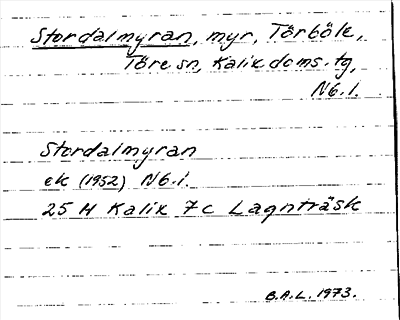 Stordalmyran, myr, Törböle,
Töre sn, Kalix doms.tg,
Nb.l.
Stordalmyran
ek (1952) Nb.l.
25 M Kalix 7c Lagnträsk
B.A.L. 1973.